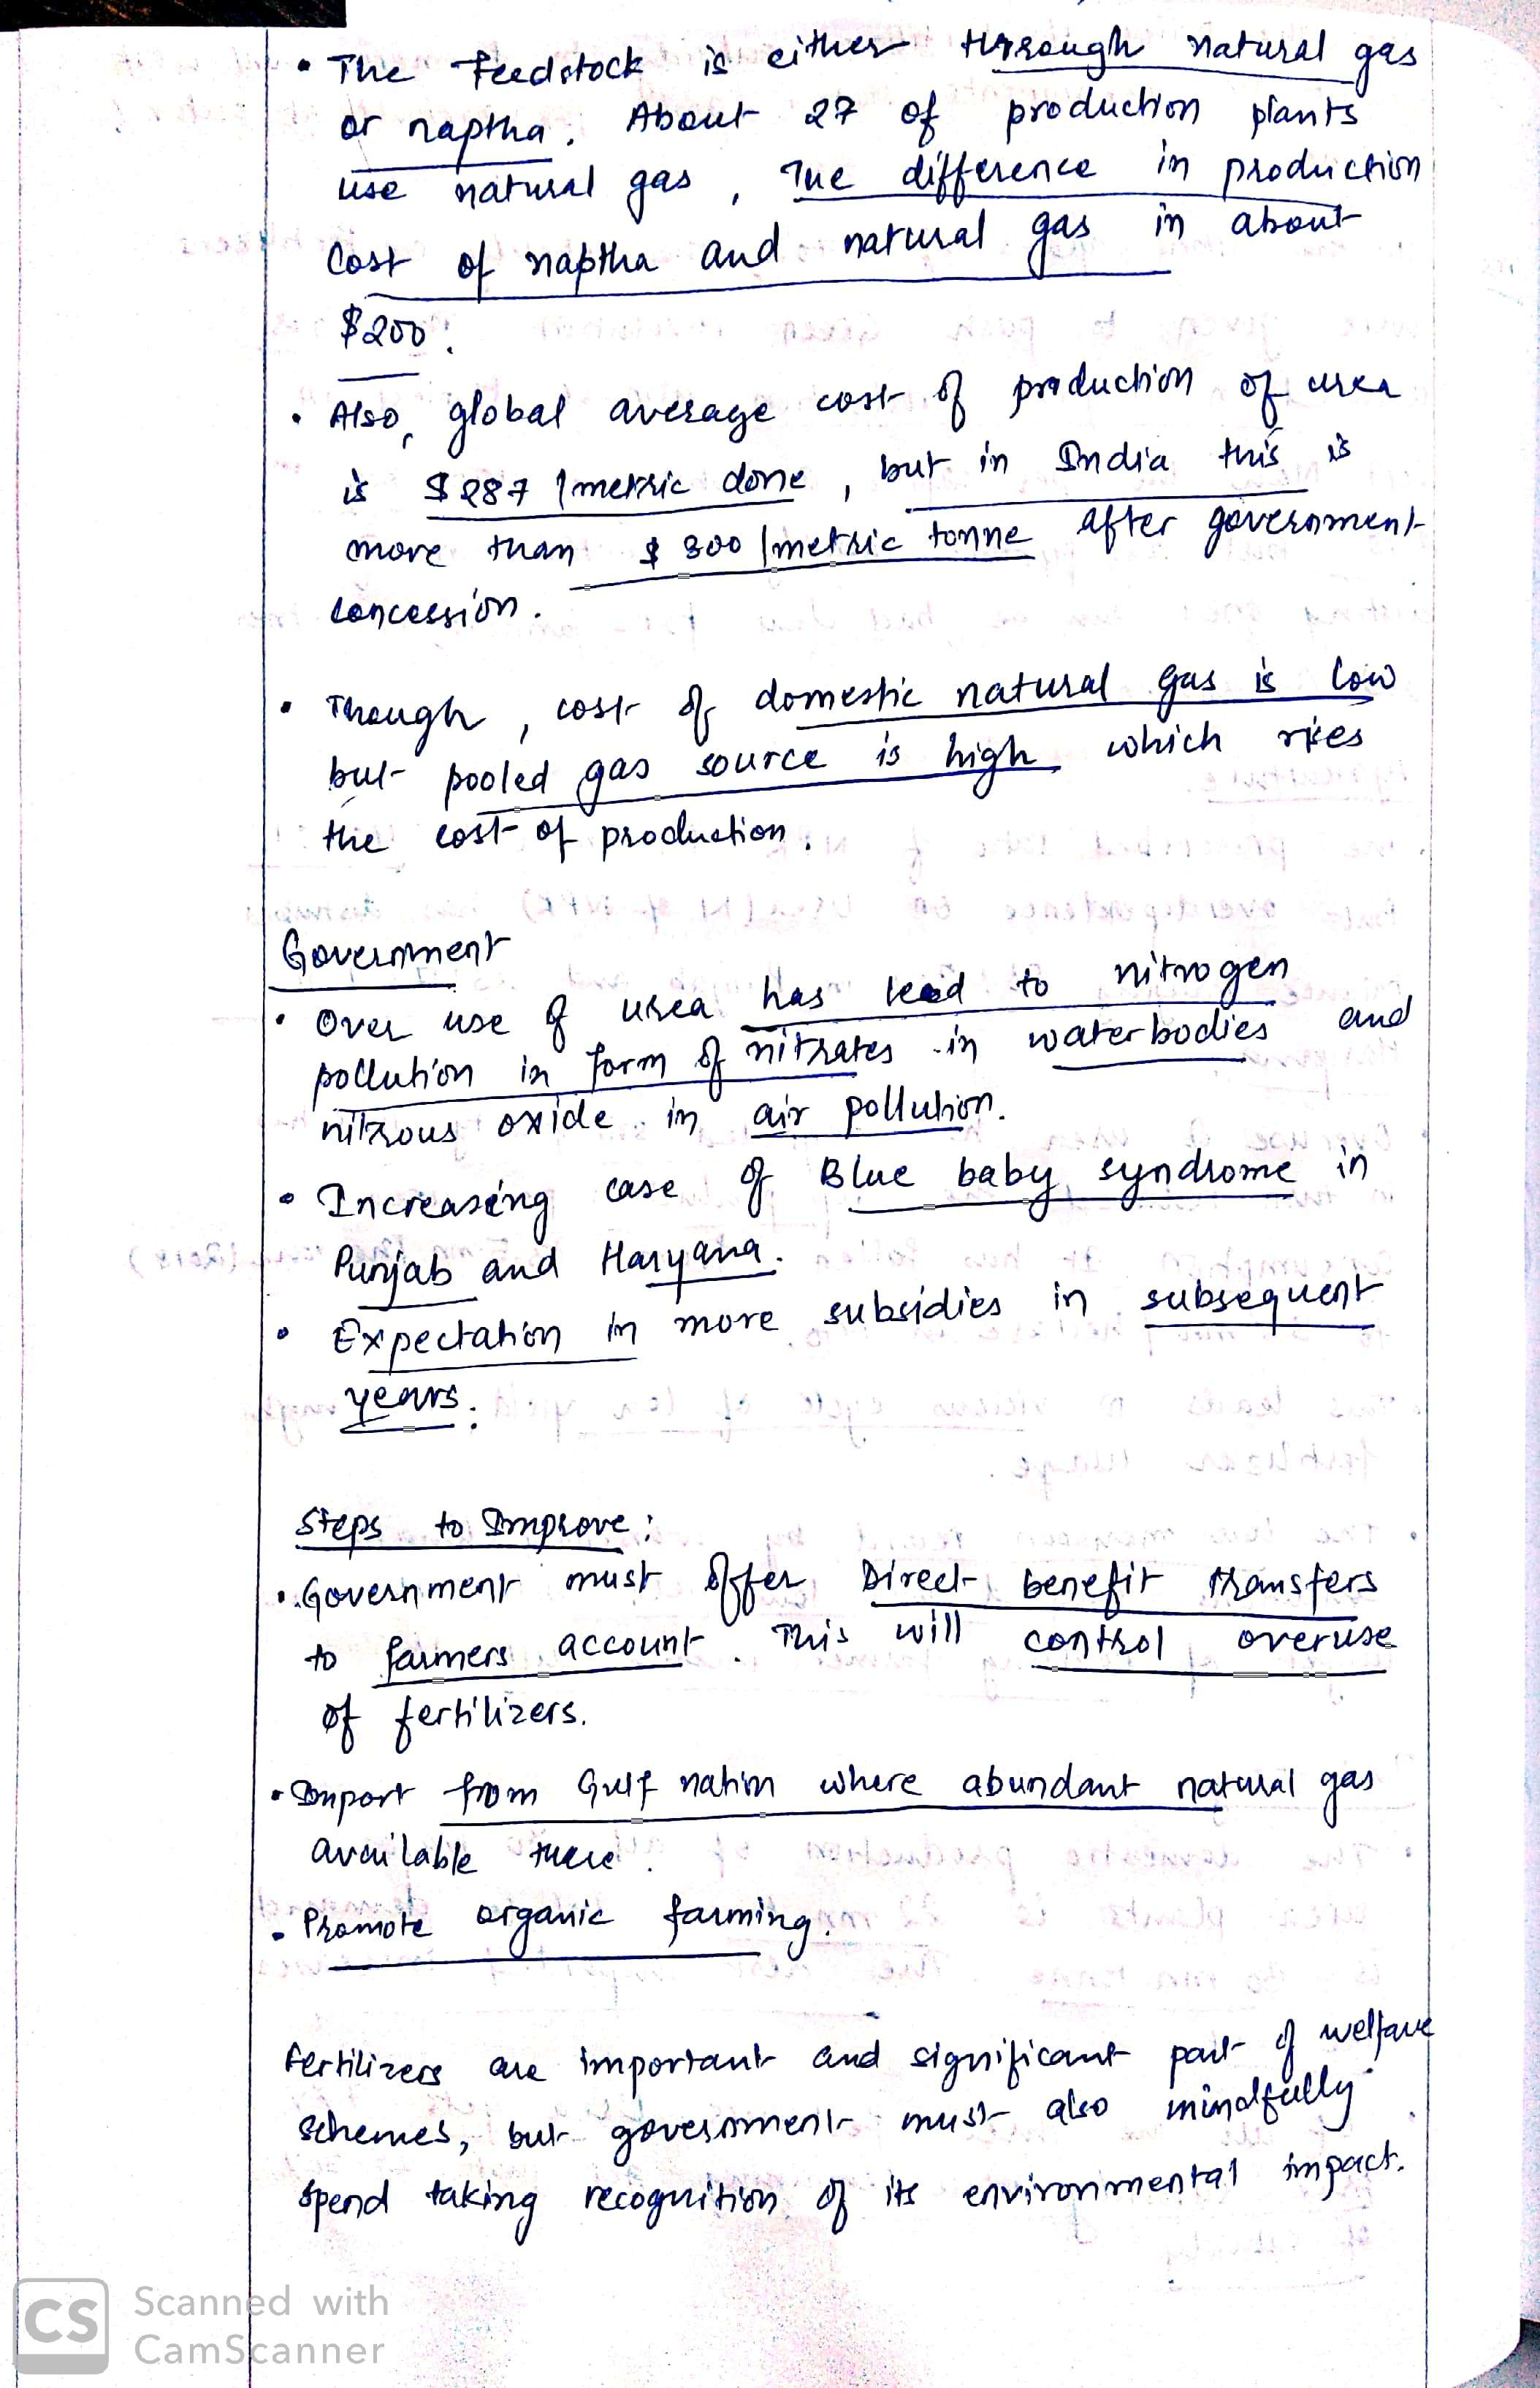 • The feedstock is either through natural gas
or naptha. About 27 of production plants
use natural gas, The difference in production
Cost of naptha and natural gas in about
$200.
• Also, global average cost of production of urea
is $287 /metric done, but in India this is
more than $300 /metric tonne after government
concession.
• Though, cost of domestic natural gas is low
but pooled gas source is high which rises
the cost of production.
Government
• Over use of urea has lead to nitrogen
pollution in form of nitrates in waterbodies and
nitrous oxide in air pollution.
• Increasing case of Blue baby syndrome in
Punjab and Haryana.
• Expectation in more subsidies in subsequent
years.
Steps to Improve:
• Government must offer Direct benefit transfers
to farmers account. This will control overuse
of fertilizers.
• Import from Gulf nation where abundant natural gas
available there.
• Promote organic farming.
Fertilizers are important and significant part of welfare
schemes, but government must also mindfully
spend taking recognition of its environmental impact.
CS Scanned with
CamScanner